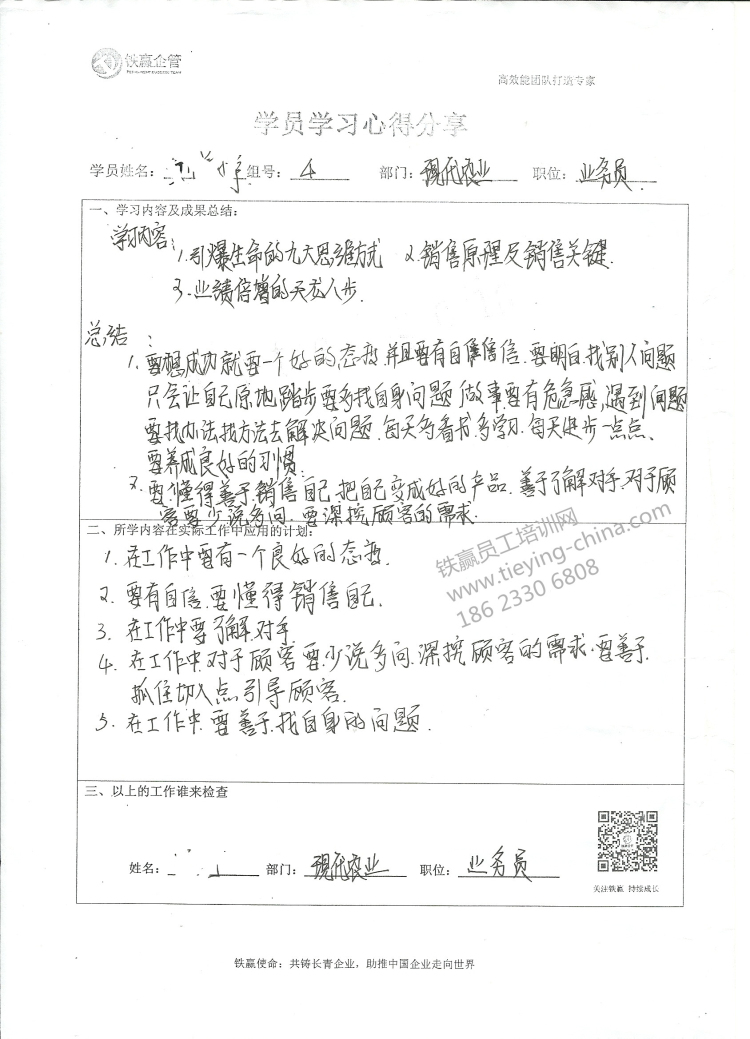 铁赢企管
高效能团队打造专家
学员学习心得分享
学员姓名： 组号： 4 部门： 现代农业 职位： 业务员
一、学习内容及成果总结：
学习内容：1. 引爆生命的九大思维方式 2. 销售原理及销售关键.
3. 业绩倍增的天龙八步.
总结：
1. 要想成功就要一个好的态度.并且要有自信.要明白.找别人问题
只会让自己原地踏步要多找自身问题.做事要有危急感.遇到问题
要找办法找方法去解决问题.每天多看书.多学习.每天进步一点点.
要养成良好的习惯.
2. 要懂得善于销售自己.把自己变成好的产品.善于了解对手.对于顾
客要少说多问.要深挖顾客的需求.
二、所学内容在实际工作中应用的计划：
1. 在工作中要有一个良好的态度.
2. 要有自信.要懂得销售自己.
3. 在工作中要了解对手.
4. 在工作中.对于顾客要少说多问.深挖顾客的需求.要善于
抓住切入点.引导顾客.
5. 在工作中.要善于找自身的问题.
铁赢员工培训网
www.tieying-china.com
186 2330 6808
三、以上的工作谁来检查
姓名： 部门： 现代农业 职位： 业务员
关注铁赢 持续成长
铁赢使命：共铸长青企业，助推中国企业走向世界